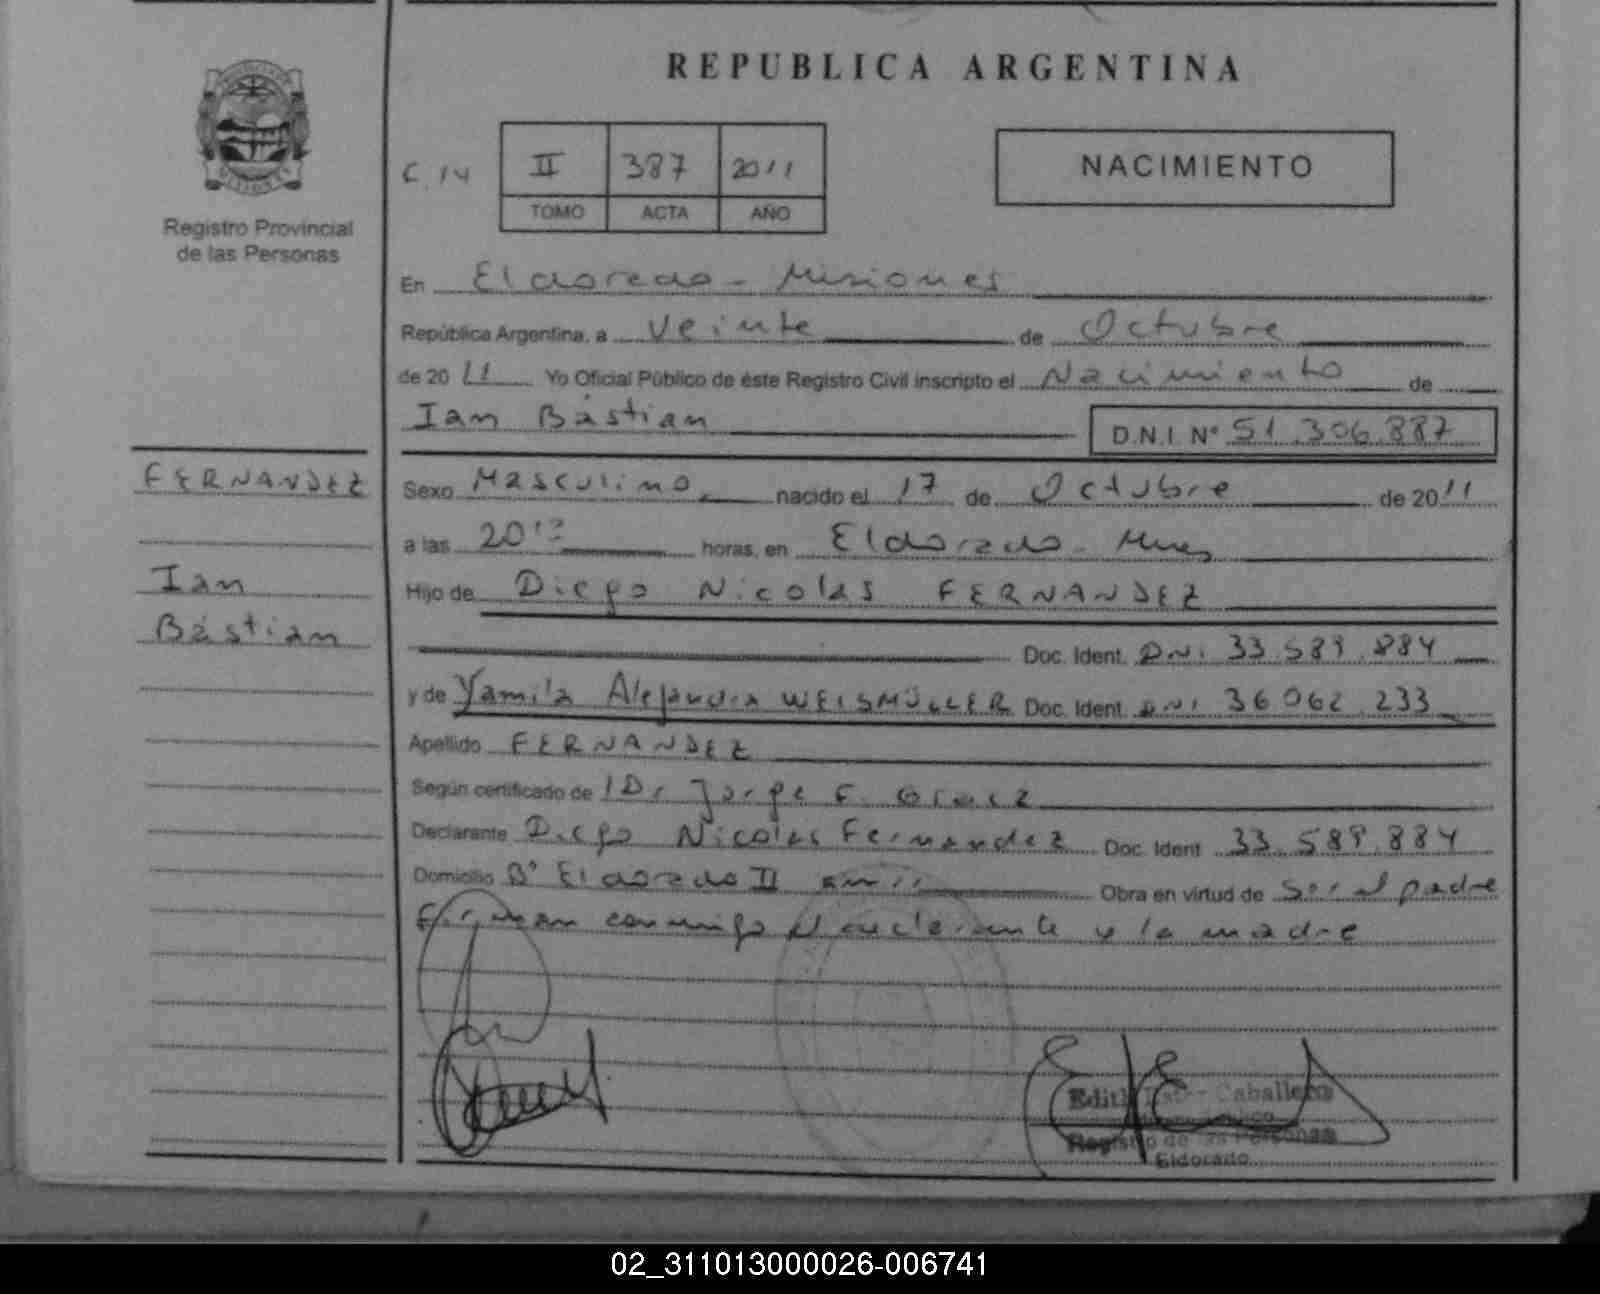 REPUBLICA ARGENTINA
C. 14
II 387 2011
TOMO ACTA AÑO
NACIMIENTO
Registro Provincial
de las Personas
En Eldorado - Misiones
República Argentina, a Veinte de Octubre
de 2011 Yo Oficial Público de éste Registro Civil inscripto el Nacimiento de
Ian Bastian D.N.I. Nº 51.306.887
FERNANDEZ
Ian
Bastian
Sexo Masculino nacido el 17 de Octubre de 2011
a las horas, en Eldorado - Mnes
Hijo de Diego Nicolas FERNANDEZ
Doc. Ident. DNI 33.589.884
y de Yamila Alejandra WEISMÜLLER Doc. Ident. DNI 36 062 233
Apellido FERNANDEZ
Según certificado de Dr Jorge F.
Declarante Diego Nicolas Fernandez Doc. Ident 33.589.884
Domicilio Bº Eldorado II Km 11 Obra en virtud de Ser el padre
Firman conmigo el declarante y la madre
Edith Caballero
Registro de las Personas
Eldorado
02_311013000026-006741